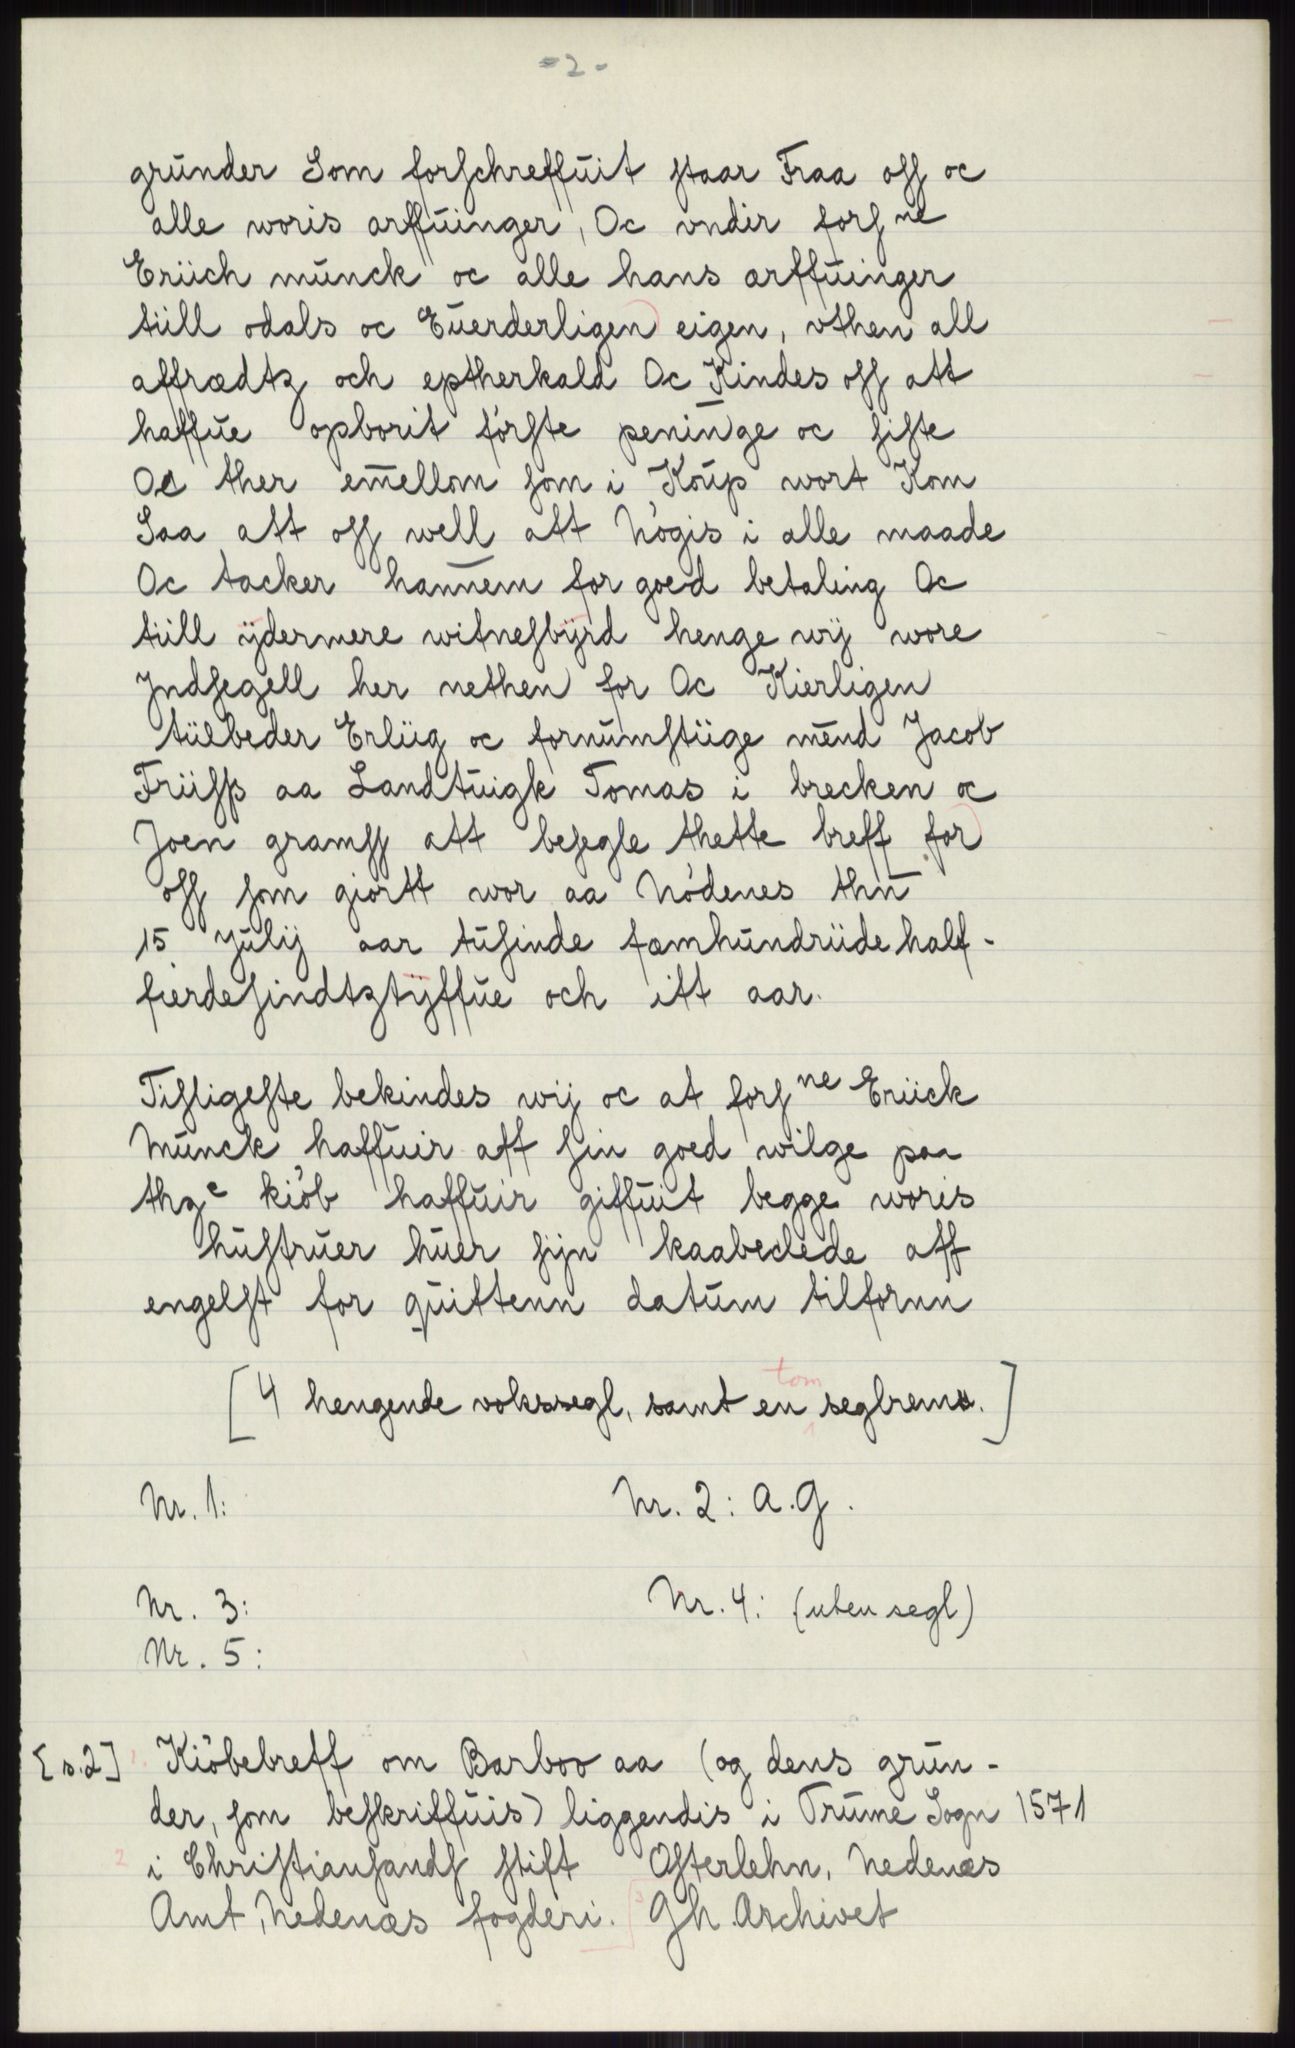 -2-
grunder Som forschreffuit staar Fraa oss oc
alle woris arffuinger, Oc vndir fors ne
Eriich munck oc alle hans arffuinger
tiill odals oc Euerderligen eigen, vthen all
affrædtz och eptherkald Oc Kindes oss att
haffue opborit förste peninge oc siste
Oc ther emellom som i Koup wort Kom
Saa att oss well att Nögis i alle maade
Oc tacker hannem for goed betaling Oc
tiill ÿdermere witnesbÿrd henge wij wore
Jndsegell her nethen for Oc Kierligen
tiilbeder Erliig oc fornumstiige mend Jacob
Friiss aa Landtuigk Tomas i brecken oc
Joen gramss att besegle thette breff for
oss som giortt wor aa Nödenes thn
15 Julij aar tusinde fæmhundriide half-
fierdesindtztÿffue och itt aar.
Tisligeste bekindes wij oc at fors ne Eriick
Munck haffuir aff sin goed wilge paa
thz e kiöb haffuir giffuit begge woris
hustruer huer sijn kaabeclede aff
engelst for quittenn datum tilfornn
[4 hengende vokssegl, samt en tom seglrem.]
Nr. 1: Nr. 2: A.G.
Nr. 3: Nr. 4: (uten segl)
Nr. 5:
[s.2] Kiöbebreff om Barboo aa (og dens grun-
der, som beskriffuis) liggendis i Trume Sogn 1571
2 i Christiansands stift Osterlehn, Nedenæs
Amt, Nedenæs fogderi. Gh. Archivet